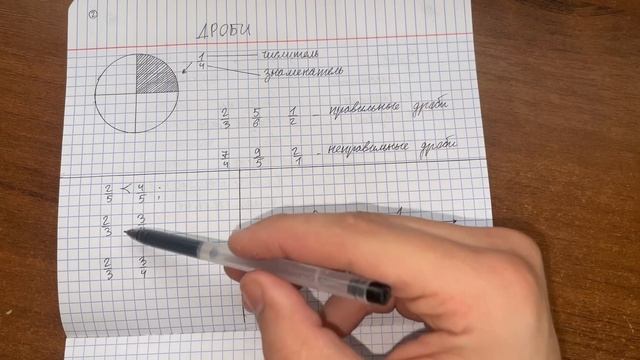 2
ДРОБИ
1/4 числитель
знаменатель
2/3 5/6 1/2 - правильные дроби
7/4 9/5 2/1 - неправильные дроби
2/5 < 4/5 ;
2/3 3
2/3 3/4